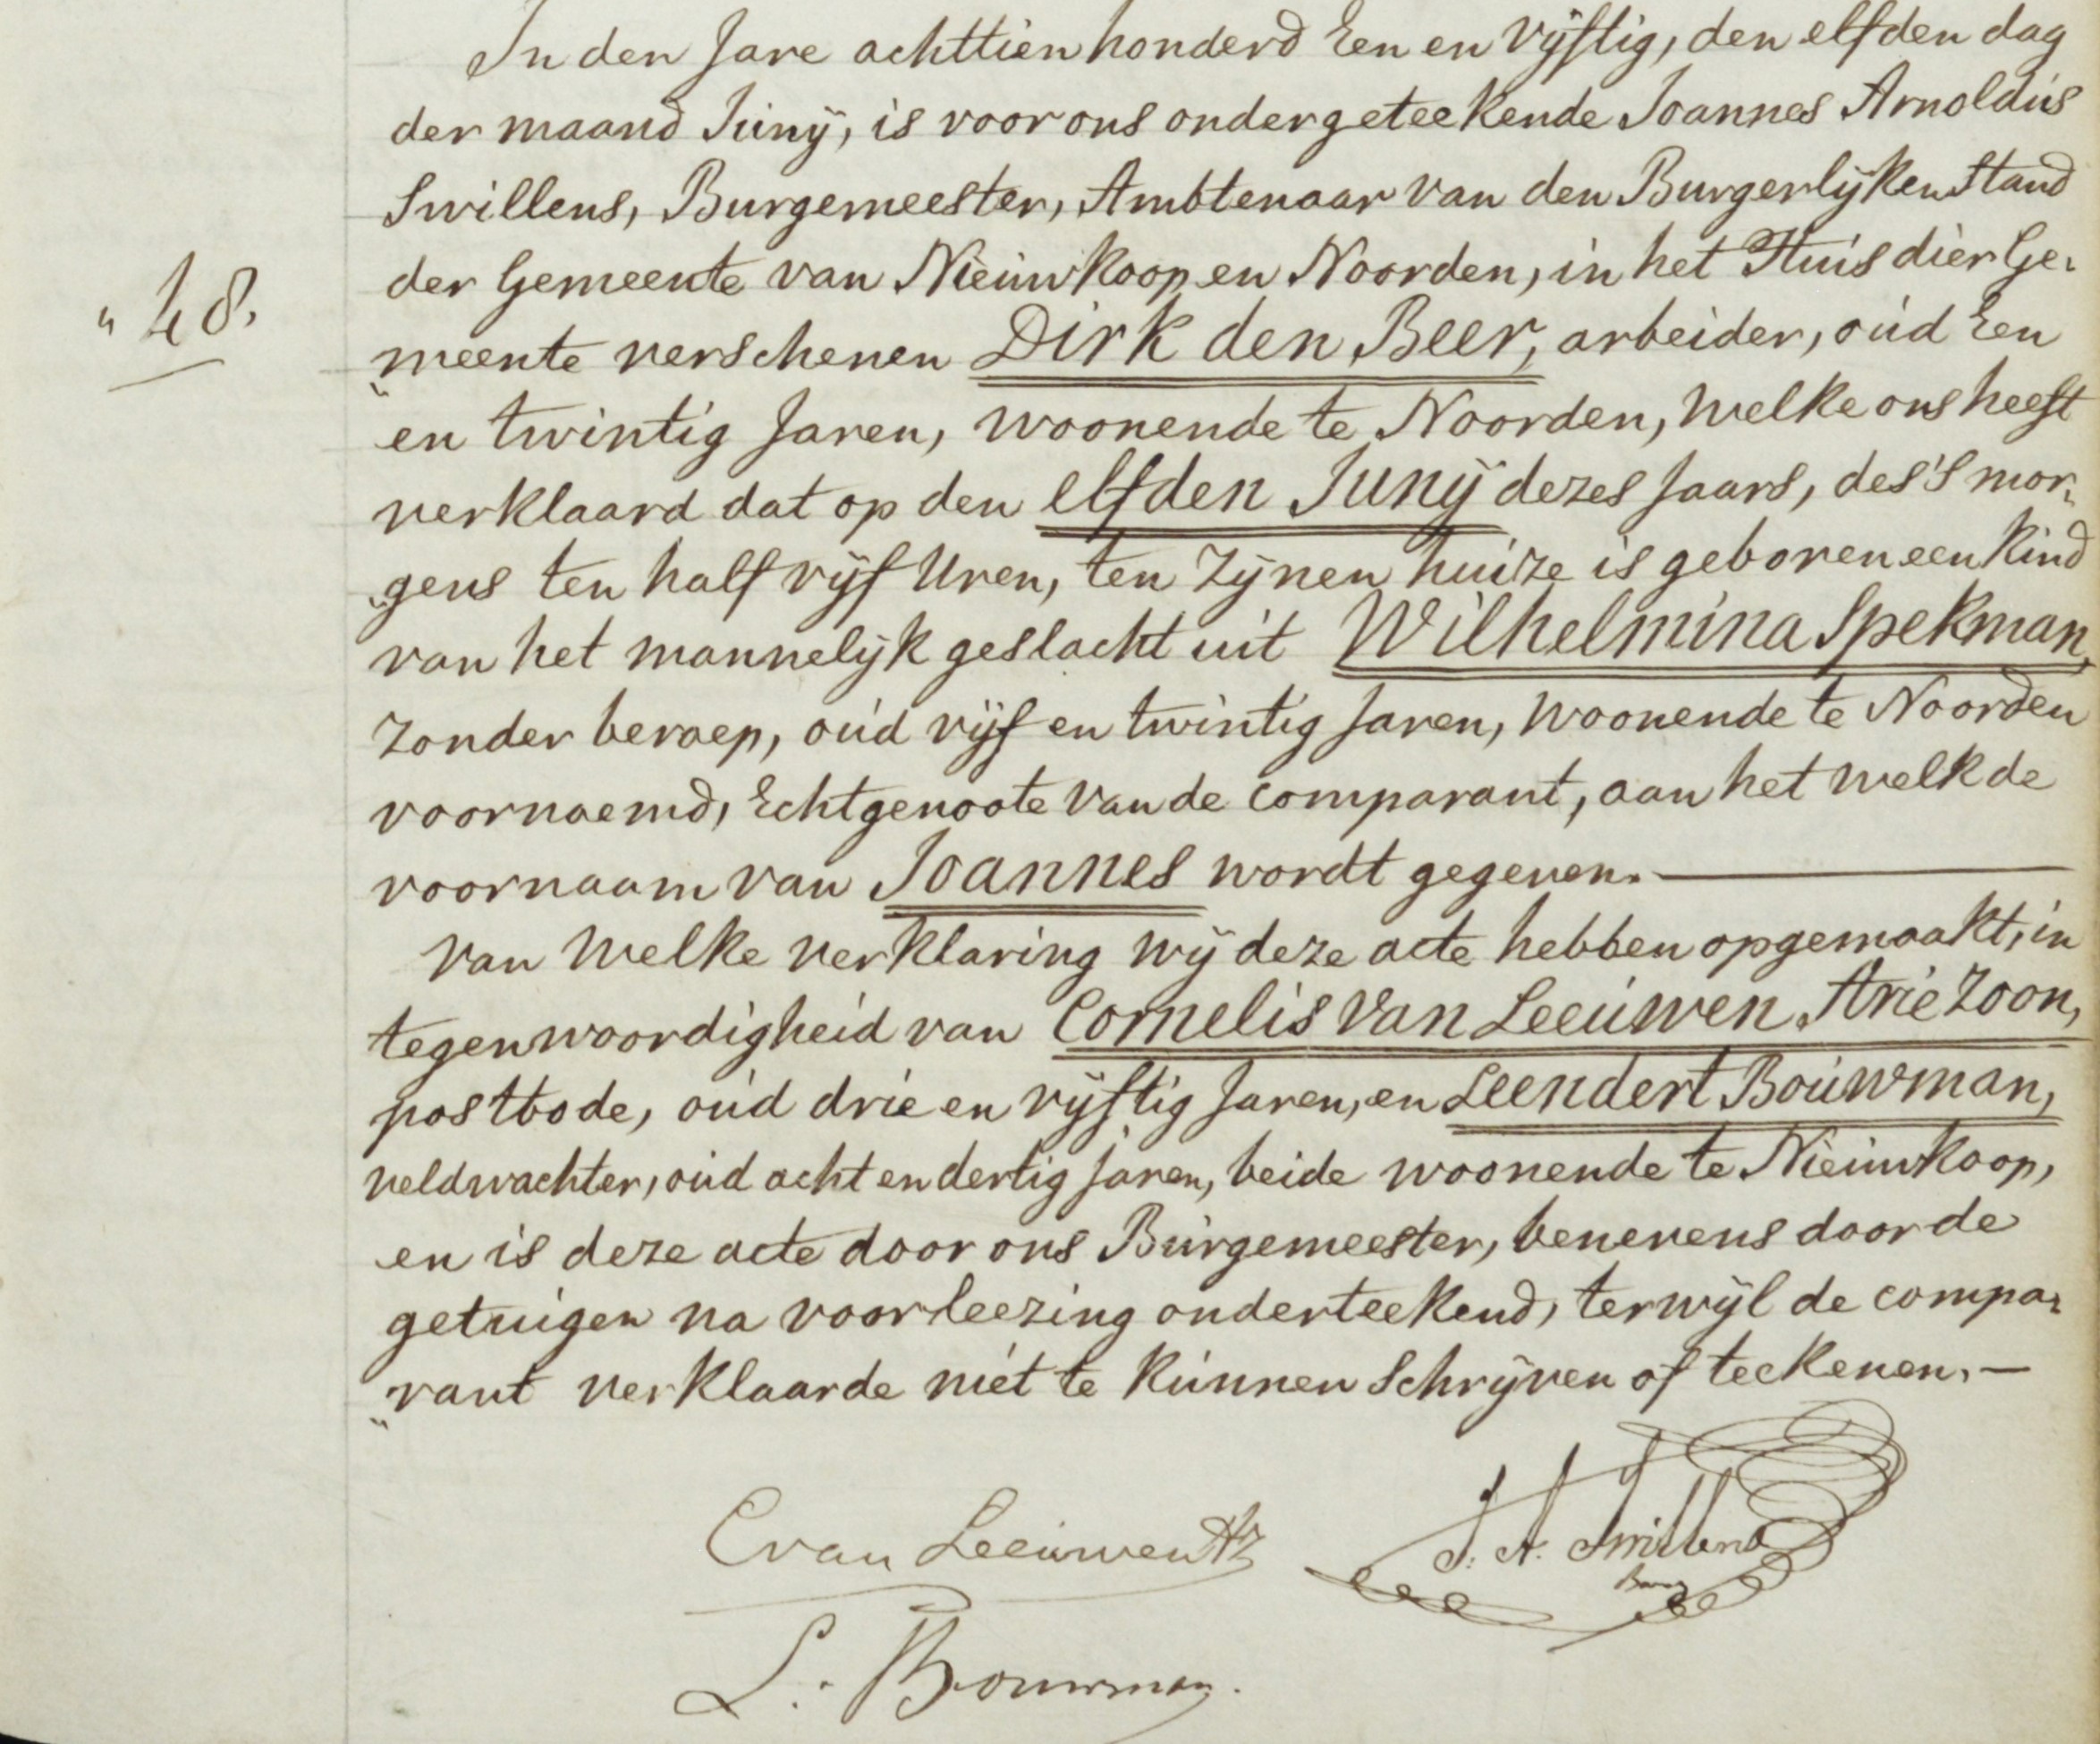 In den Jare achttien honderd Een en Vijftig, den elfden dag
der maand Junij, is voor ons ondergeteekende Joannes Arnoldus
Swillens, Burgemeester, Ambtenaar van den Burgerlijken Stand
der Gemeente van Nieuwkoop en Noorden, in het Huis dier Ge„
„ 48.
„meente verschenen Dirk den Beer, arbeider, oud Een
en twintig Jaren, woonende te Noorden, welke ons heeft
verklaard dat op den elfden Junij dezes Jaars, des 's mor„
„gens ten half vijf Uren, ten Zijnen huize is geboren een kind
van het mannelijk geslacht uit Wilhelmina Spekman,
zonder beroep, oud vijf en twintig Jaren, woonende te Noorden
voornoemd, Echtgenoote van de comparant, aan het welk de
voornaam van Joannes wordt gegeven.
Van Welke verklaring wij deze acte hebben opgemaakt, in
tegenwoordigheid van Cornelis van Leeuwen Arie Zoon,
postbode, oud drie en vijftig Jaren, en Leendert Bouwman,
veldwachter, oud acht en dertig jaren, beide woonende te Nieuwkoop,
en is deze acte door ons Burgemeester, benevens door de
getuigen na voorleezing onderteekend, terwijl de compa„
„rant verklaarde niet te kunnen Schrijven of teekenen. —
C van Leeuwen Az
J. A. Swillens
Burg
L. Bouwman.